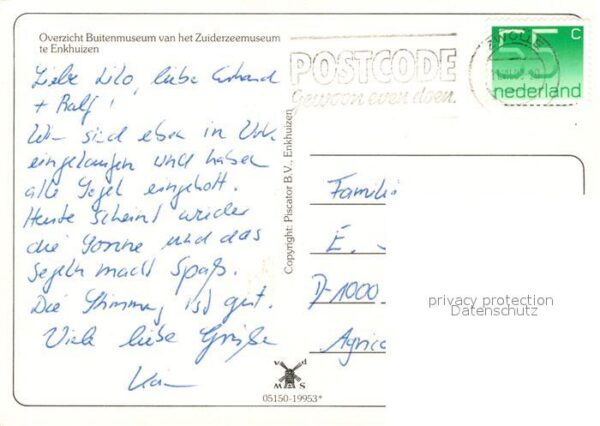 Overzicht Buitenmuseum van het Zuiderzeemuseum
te Enkhuizen
Liebe Lilo, liebe Erhard
+ Ralf!
Wir sind eben in Urk
eingelaufen und haben
alle Segel eingeholt.
Heute scheint wieder
die Sonne und das
Segeln macht Spaß.
Die Stimmung ist gut.
Viele liebe Grüße
Kai
POSTCODE
Gewoon even doen.
ZWOLLE
55 C
nederland
Copyright: Piscator B.V., Enkhuizen
Familie
E.
D-1000
Agrico
privacy protection
Datenschutz
v d
W S
05150-19953*